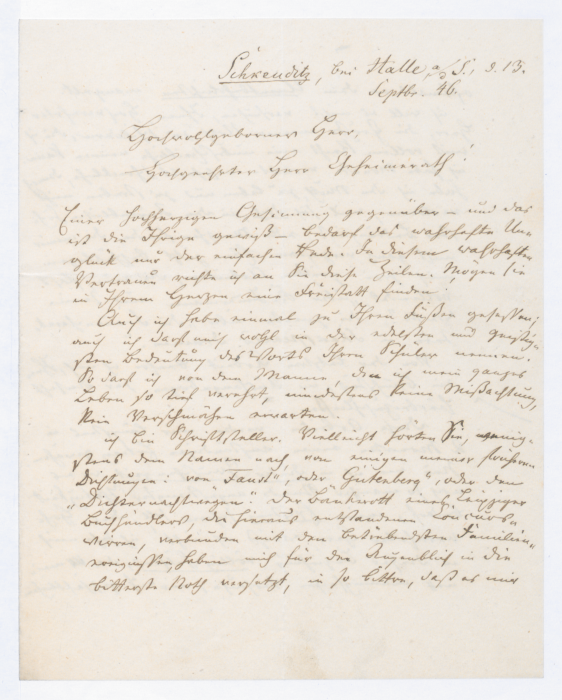 Schkeuditz, bei Halle a/S., d. 13.
Septbr. 46.
Hochwohlgeborner Herr,
Hochgeehrter Herr Geheimerath!
Einer hochherzigen Gesinnung gegenüber – und das
ist die Ihrige gewiß – bedarf das wahrhafte Un-
glück nur der einfachen Rede. In diesem wahrhaften
Vertrauen richte ich an Sie diese Zeilen. Mögen sie
in Ihrem Herzen eine Freistatt finden!
Auch ich habe einmal zu Ihren Füßen gesessen;
auch ich darf mich wohl in der edelsten und geistig-
sten Bedeutung des Worts Ihren Schüler nennen.
So darf ich von dem Manne, den ich mein ganzes
Leben so tief verehrt, mindestens keine Mißachtung,
kein Verschmähen erwarten.
ich bin Schriftsteller. Vielleicht hörten Sie, wenig-
stens dem Namen nach, von einigen meiner früheren
Dichtungen: von „Faust", oder „Gutenberg", oder den
„Dichternachtwegen". Der Bankrott eines Leipziger
Buchhändlers, die hieraus entstandenen Concurs-
wirren, verbunden mit den betrübendsten Familien-
ereignissen, haben mich für den Augenblick in die
bitterste Noth versetzt, in so bittre, daß es mir